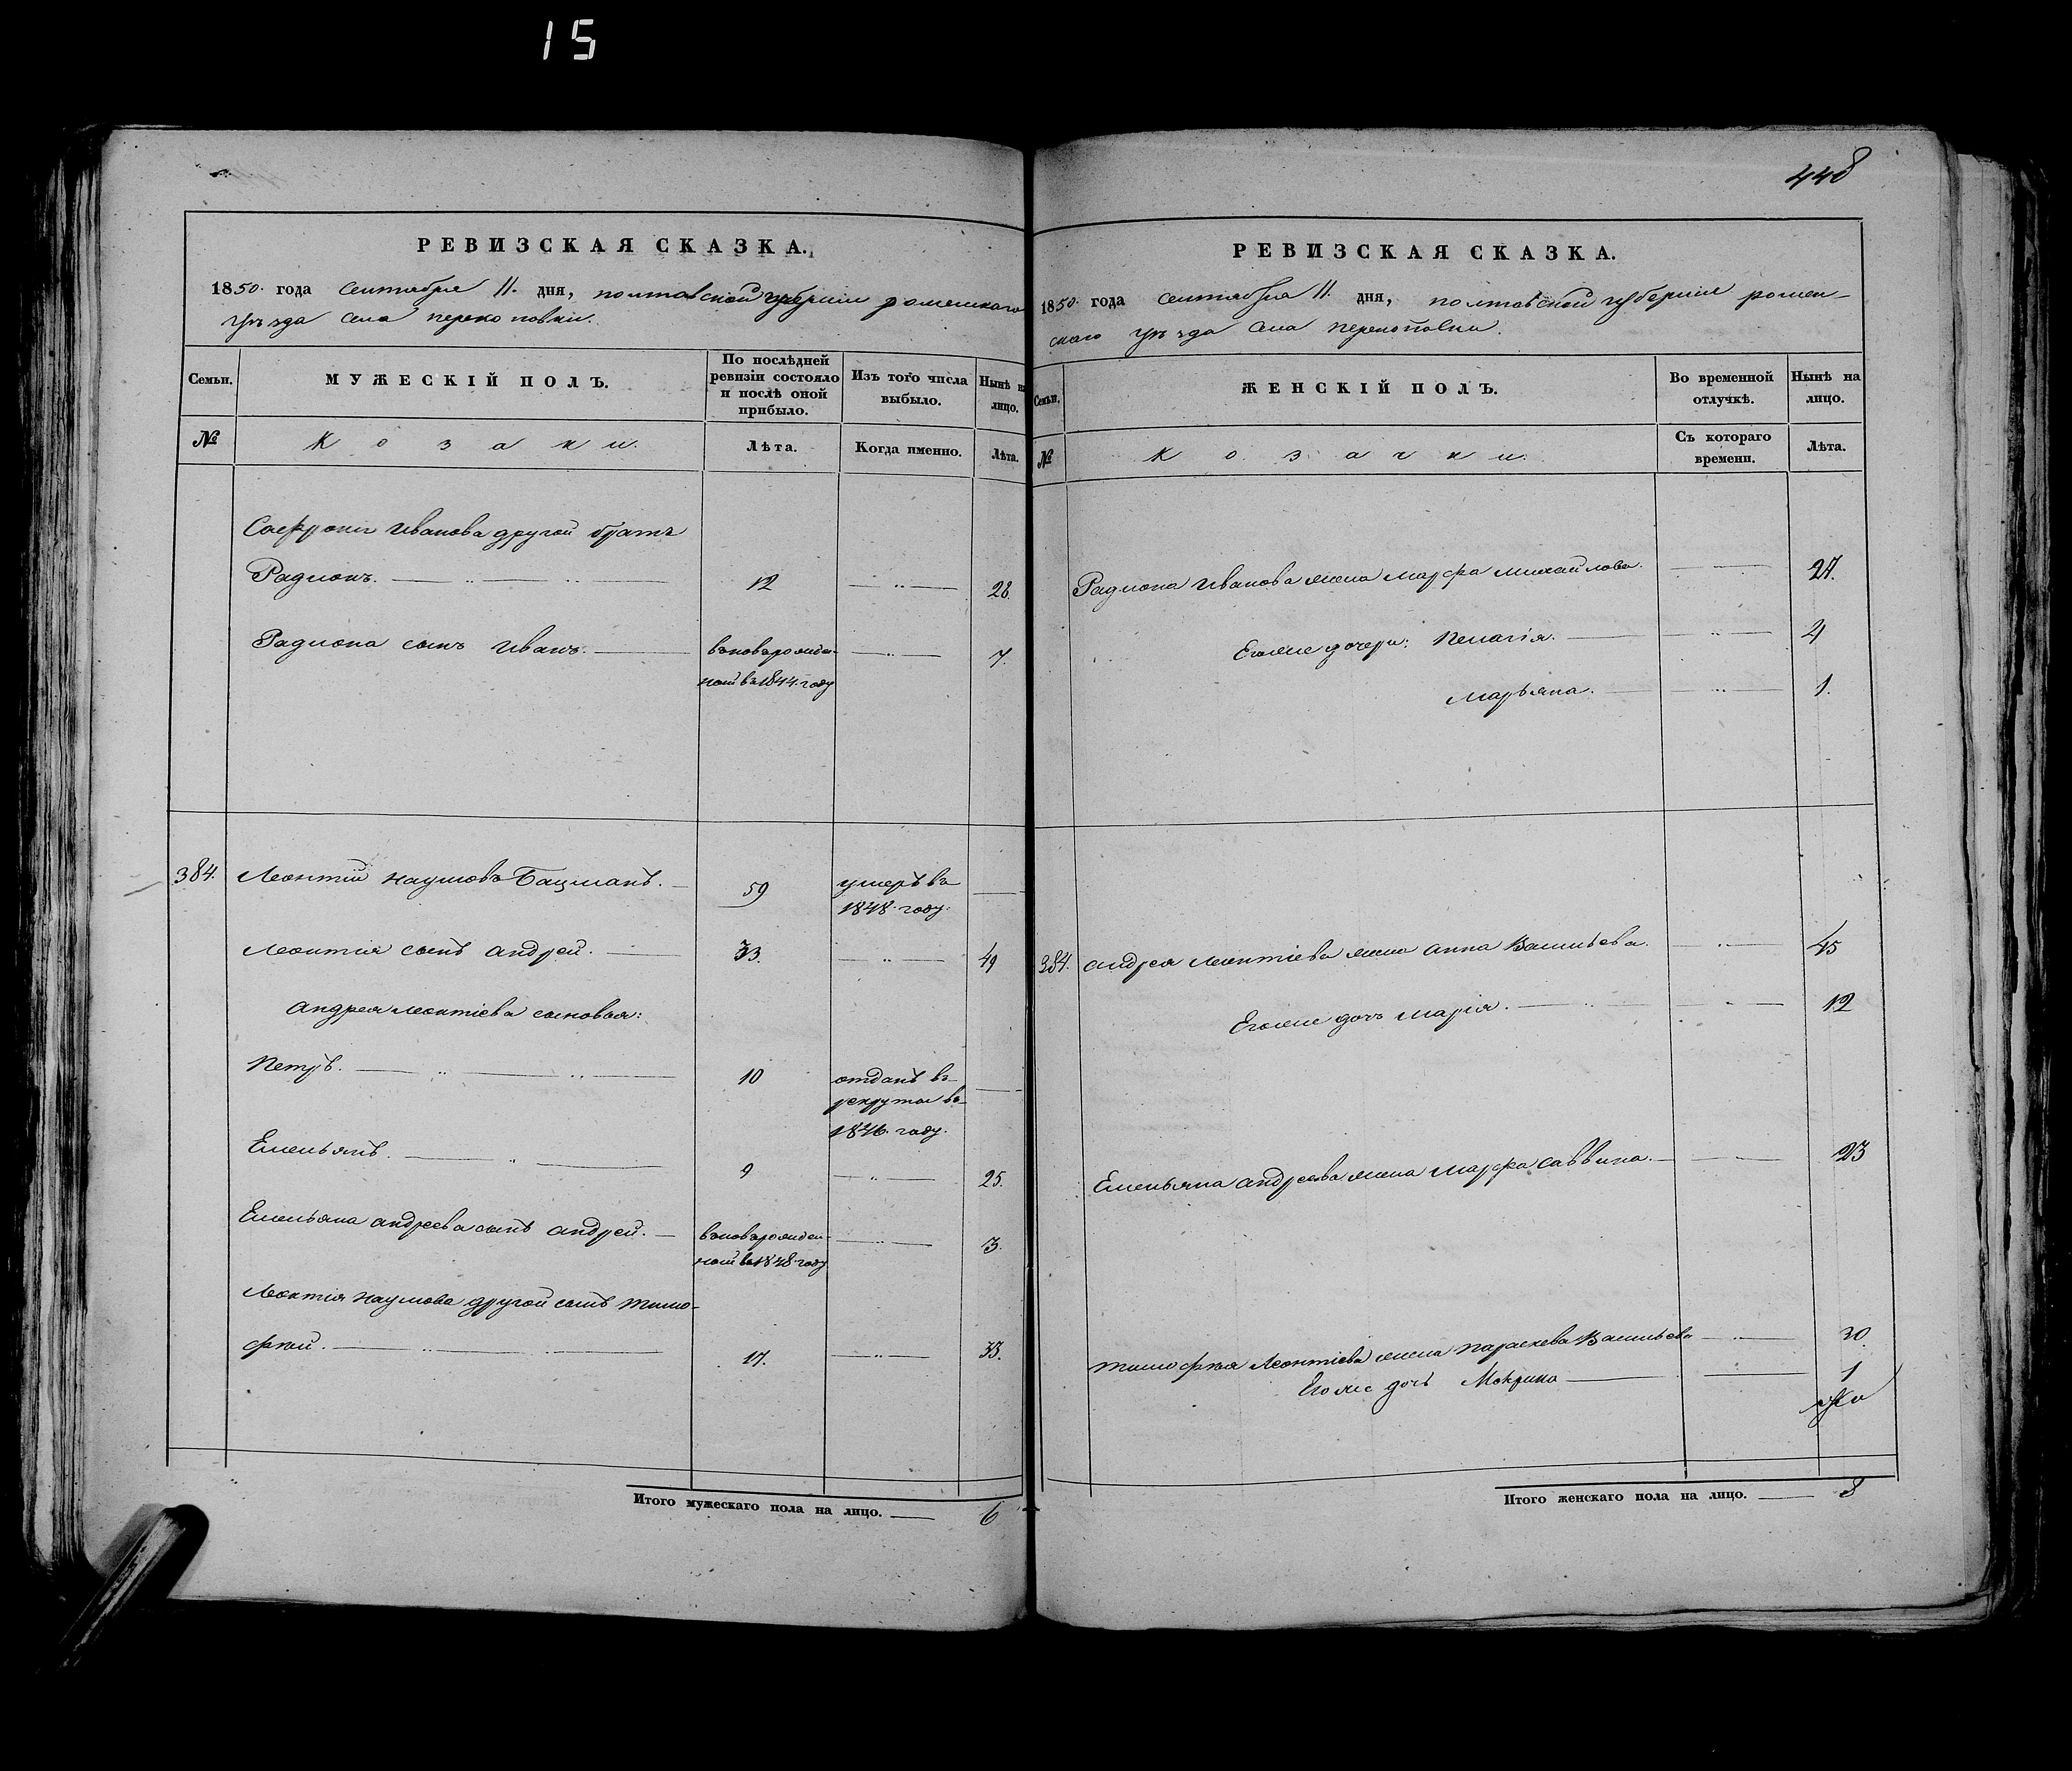 15
РЕВИЗСКАЯ СКАЗКА.
1850. года сентября 11. дня, полтавской губерніи роменскаго
уѣзда села перекоповки.
Семьи.
МУЖЕСКІЙ ПОЛЪ.
По послѣдней
ревизіи состояло
и послѣ оной
прибыло.
Изъ того числа
выбыло.
Нынѣ на
лицо.
№
Козаки.
Лѣта.
Когда именно.
Лѣта.
Софронія Иванова другой братъ
Радионъ. 12 28.
Радиона сынъ Иванъ. вновьрожден- 7.
ной въ 1844. году
384. Леонтий наумовъ Бацманъ. 59 умеръ въ
1848. году.
Леонтія сынъ андрей. 33. 49
андрея леонтіева сыновья:
Петръ. 10 отданъ въ
рекруты въ
1846. году.
Емельянъ. 9 25.
Емельяна андреева сынъ андрей. вновьрожден- 3.
ной въ 1848. году
Леонтія наумова другой сынъ тимо-
фѣй. 17. 33.
Итого мужескаго пола на лицо. 6
448
РЕВИЗСКАЯ СКАЗКА.
1850. года сентября 11. дня, полтавской губерніи ромен-
скаго уѣзда села перекоповки.
Семьи.
ЖЕНСКІЙ ПОЛЪ.
Во временной
отлучкѣ.
Нынѣ на
лицо.
№
Козачки.
Съ котораго
времени.
Лѣта.
Радиона Иванова жена марфа михайлова. 27.
Егоже дочери: Пелагія. 4
марьяна. 1.
384. андрея леонтіева жена анна Васильева. 45
Егоже дочь марія. 12
Емельяна андреева жена марфа саввина. 23
тимофѣя леонтіева жена параскева Васильева 30.
Егоже дочь Мокрина 1
Итого женскаго пола на лицо. 8